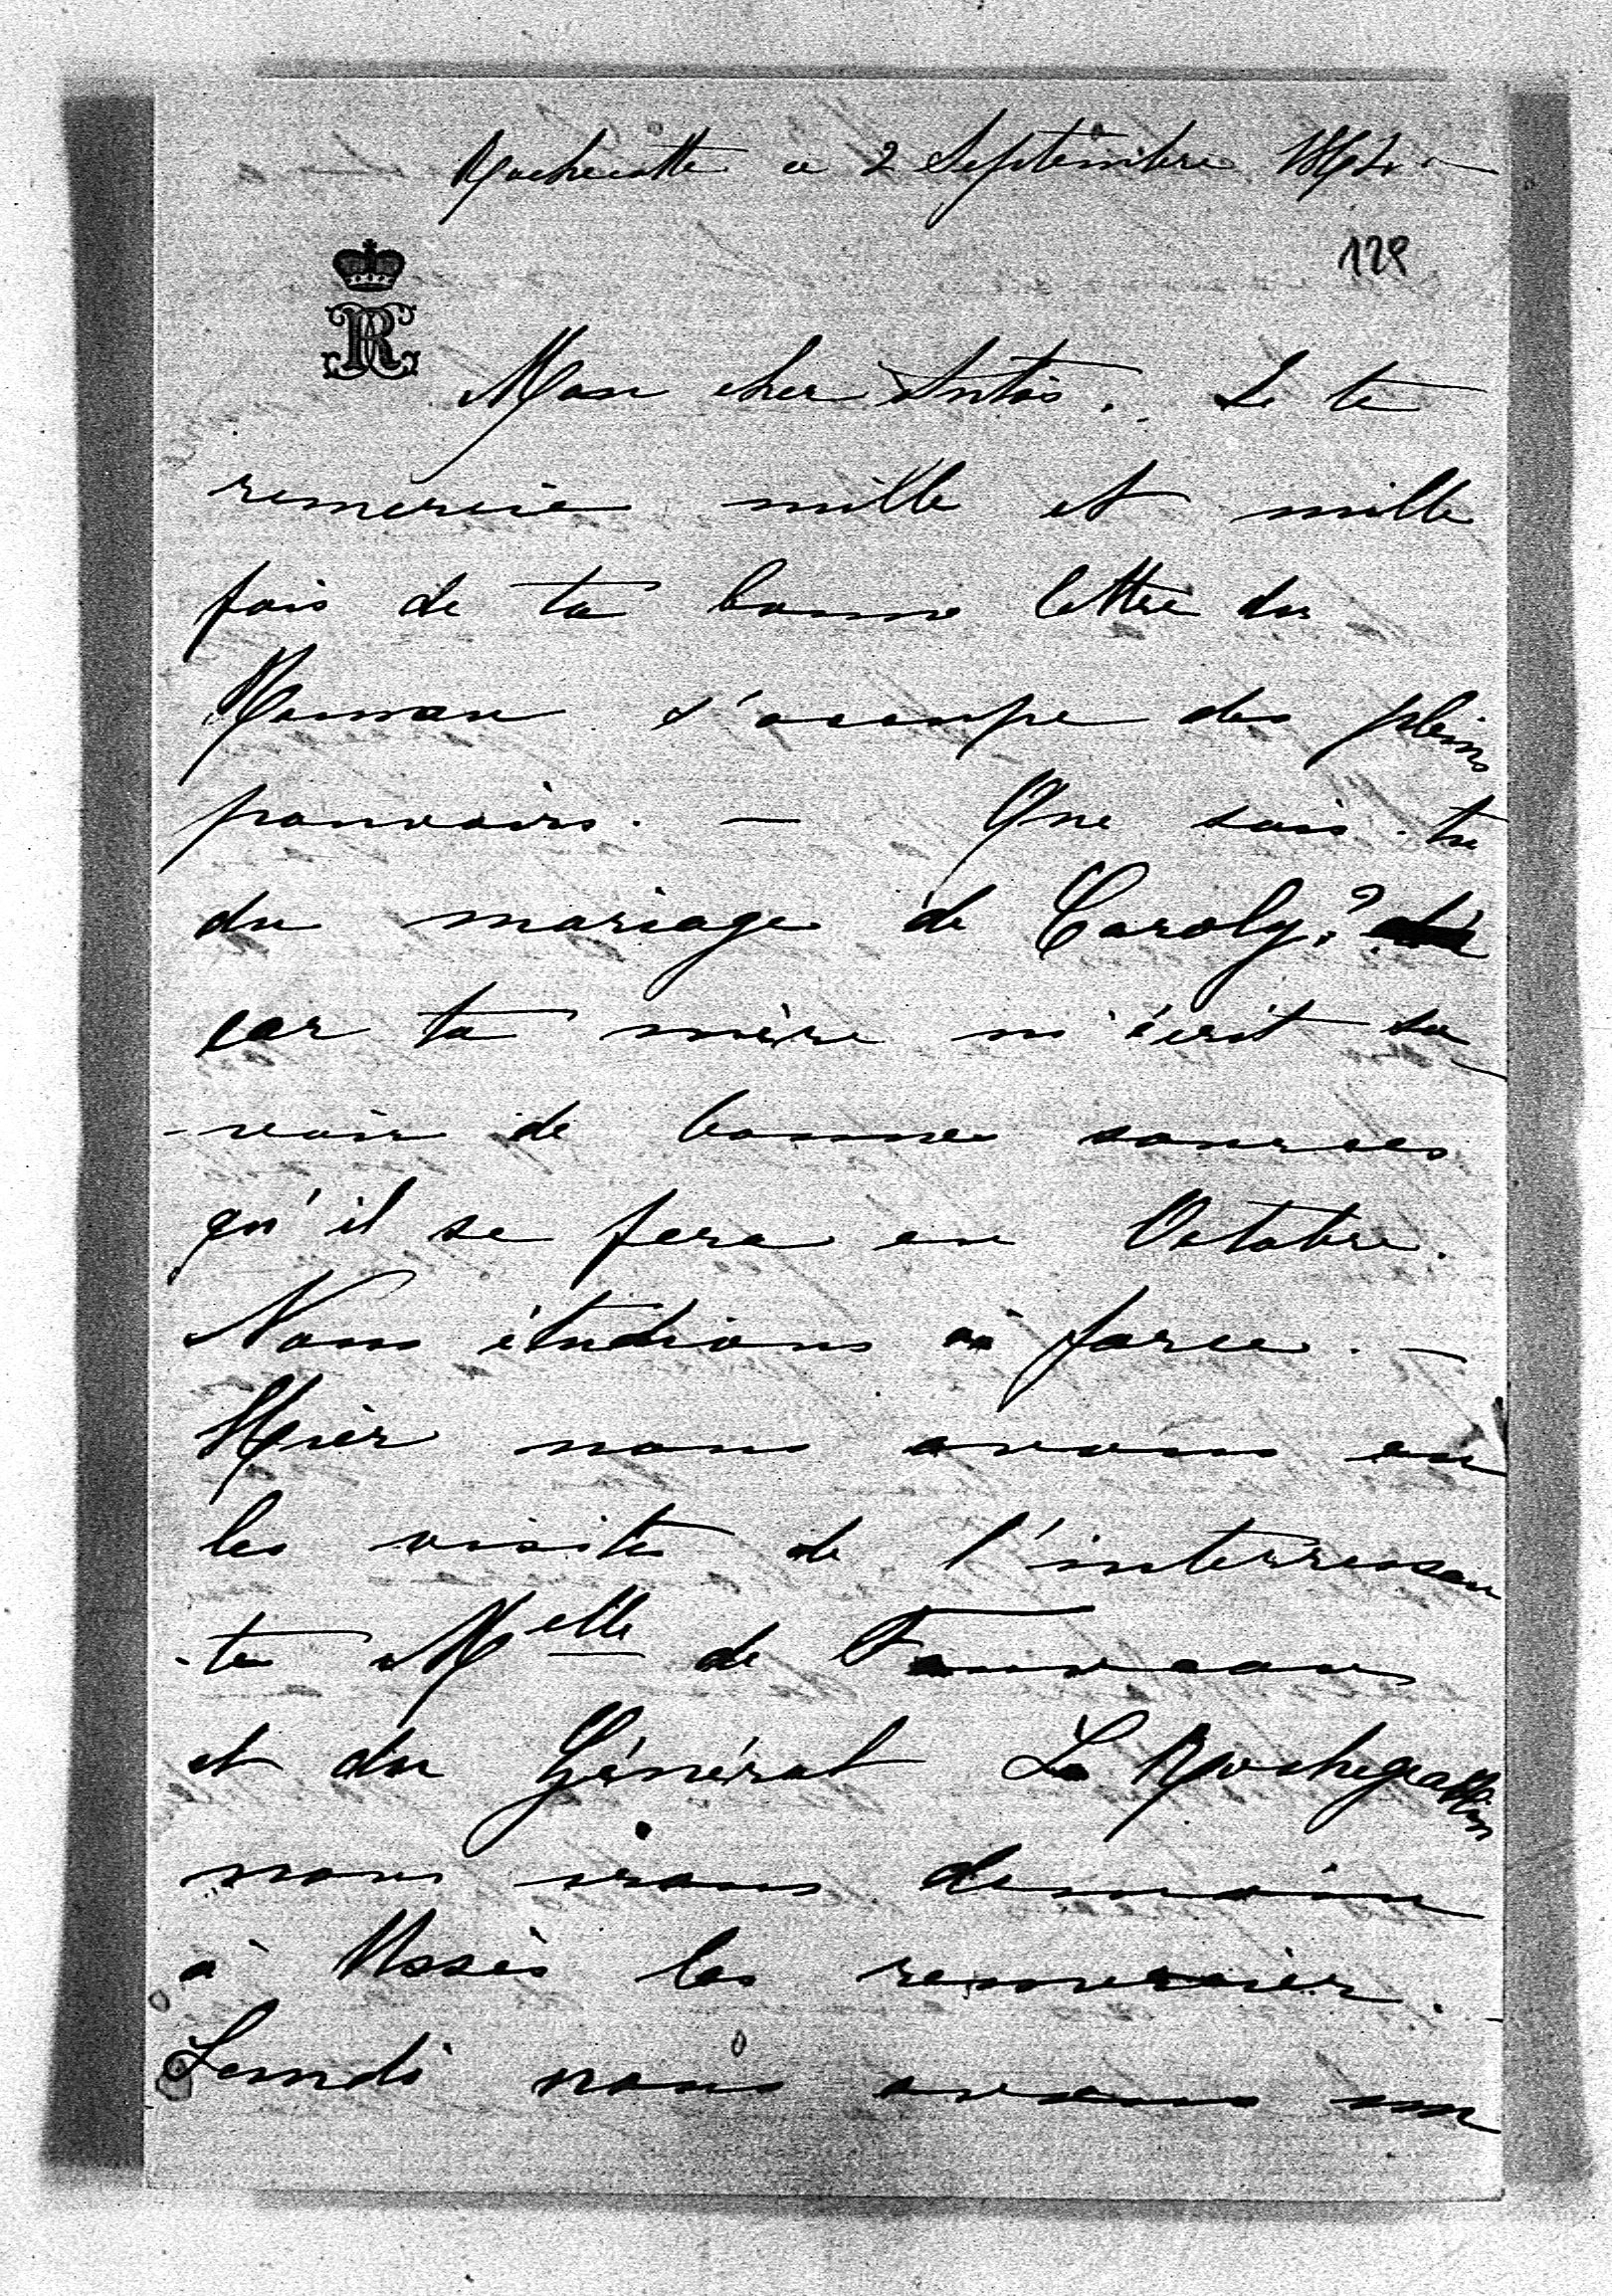 Rochecotte ce 2 Septembre
129
R
Mon cher Antos. Je te
remercie mille et mille
fois de ta bonne lettre du
Maman s'occupe des pleins
pouvoirs. — Que sais-tu
du mariage de Caroly?
car ta mère m'écrit sa
-voir de bonnes sources
qu'il se fera en Octobre.
Nous étudions à force. —
Hier nous avons eu
les visites de l'interressan
-te Melle de
et du Général La Rocheja
nous irons demain
à Ussés les remercier. -
Lundi nous avons un